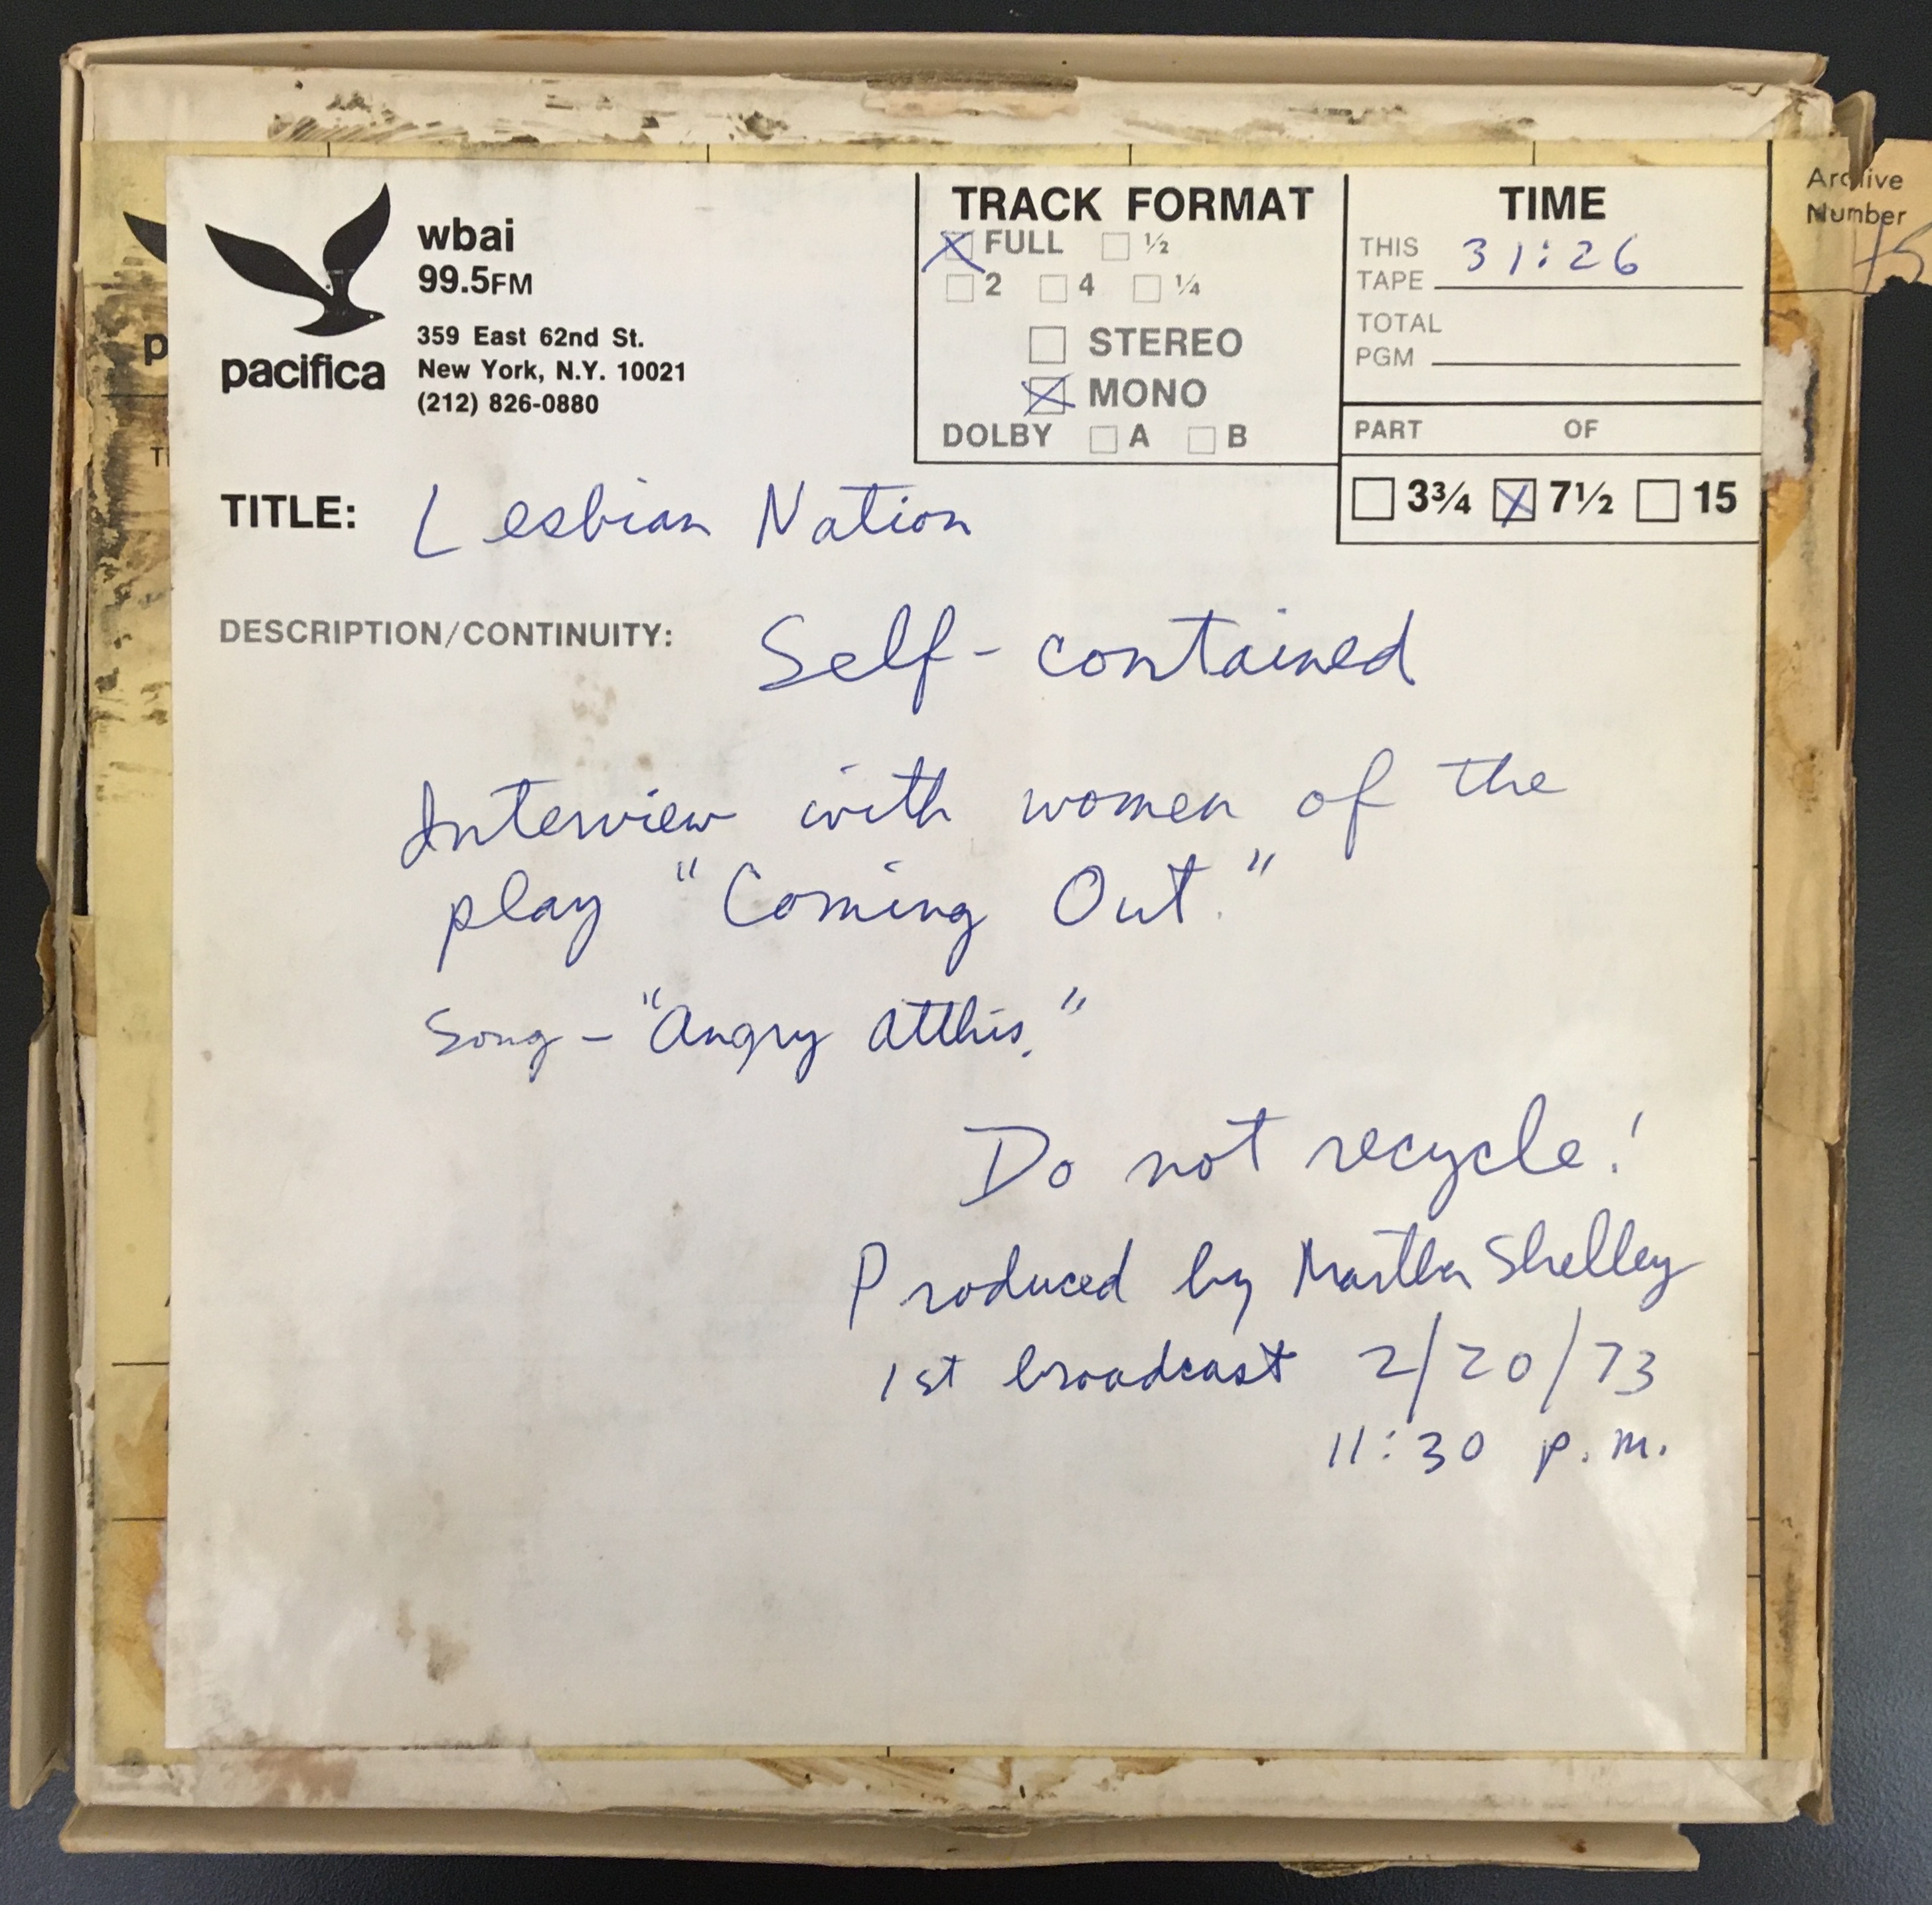 wbai
99.5FM
359 East 62nd St.
New York, N.Y. 10021
(212) 826-0880
pacifica
TRACK FORMAT
FULL ½
2 4 ¼
STEREO
MONO
DOLBY A B
TIME
THIS
TAPE 31:26
TOTAL
PGM
PART OF
3¾ 7½ 15
Archive
Number
TITLE: Lesbian Nation
DESCRIPTION/CONTINUITY: Self-contained
Interview with women of the
play "Coming Out."
Song - "Angry Atthis."
Do not recycle!
Produced by Martha Shelley
1st broadcast 2/20/73
11:30 p.m.